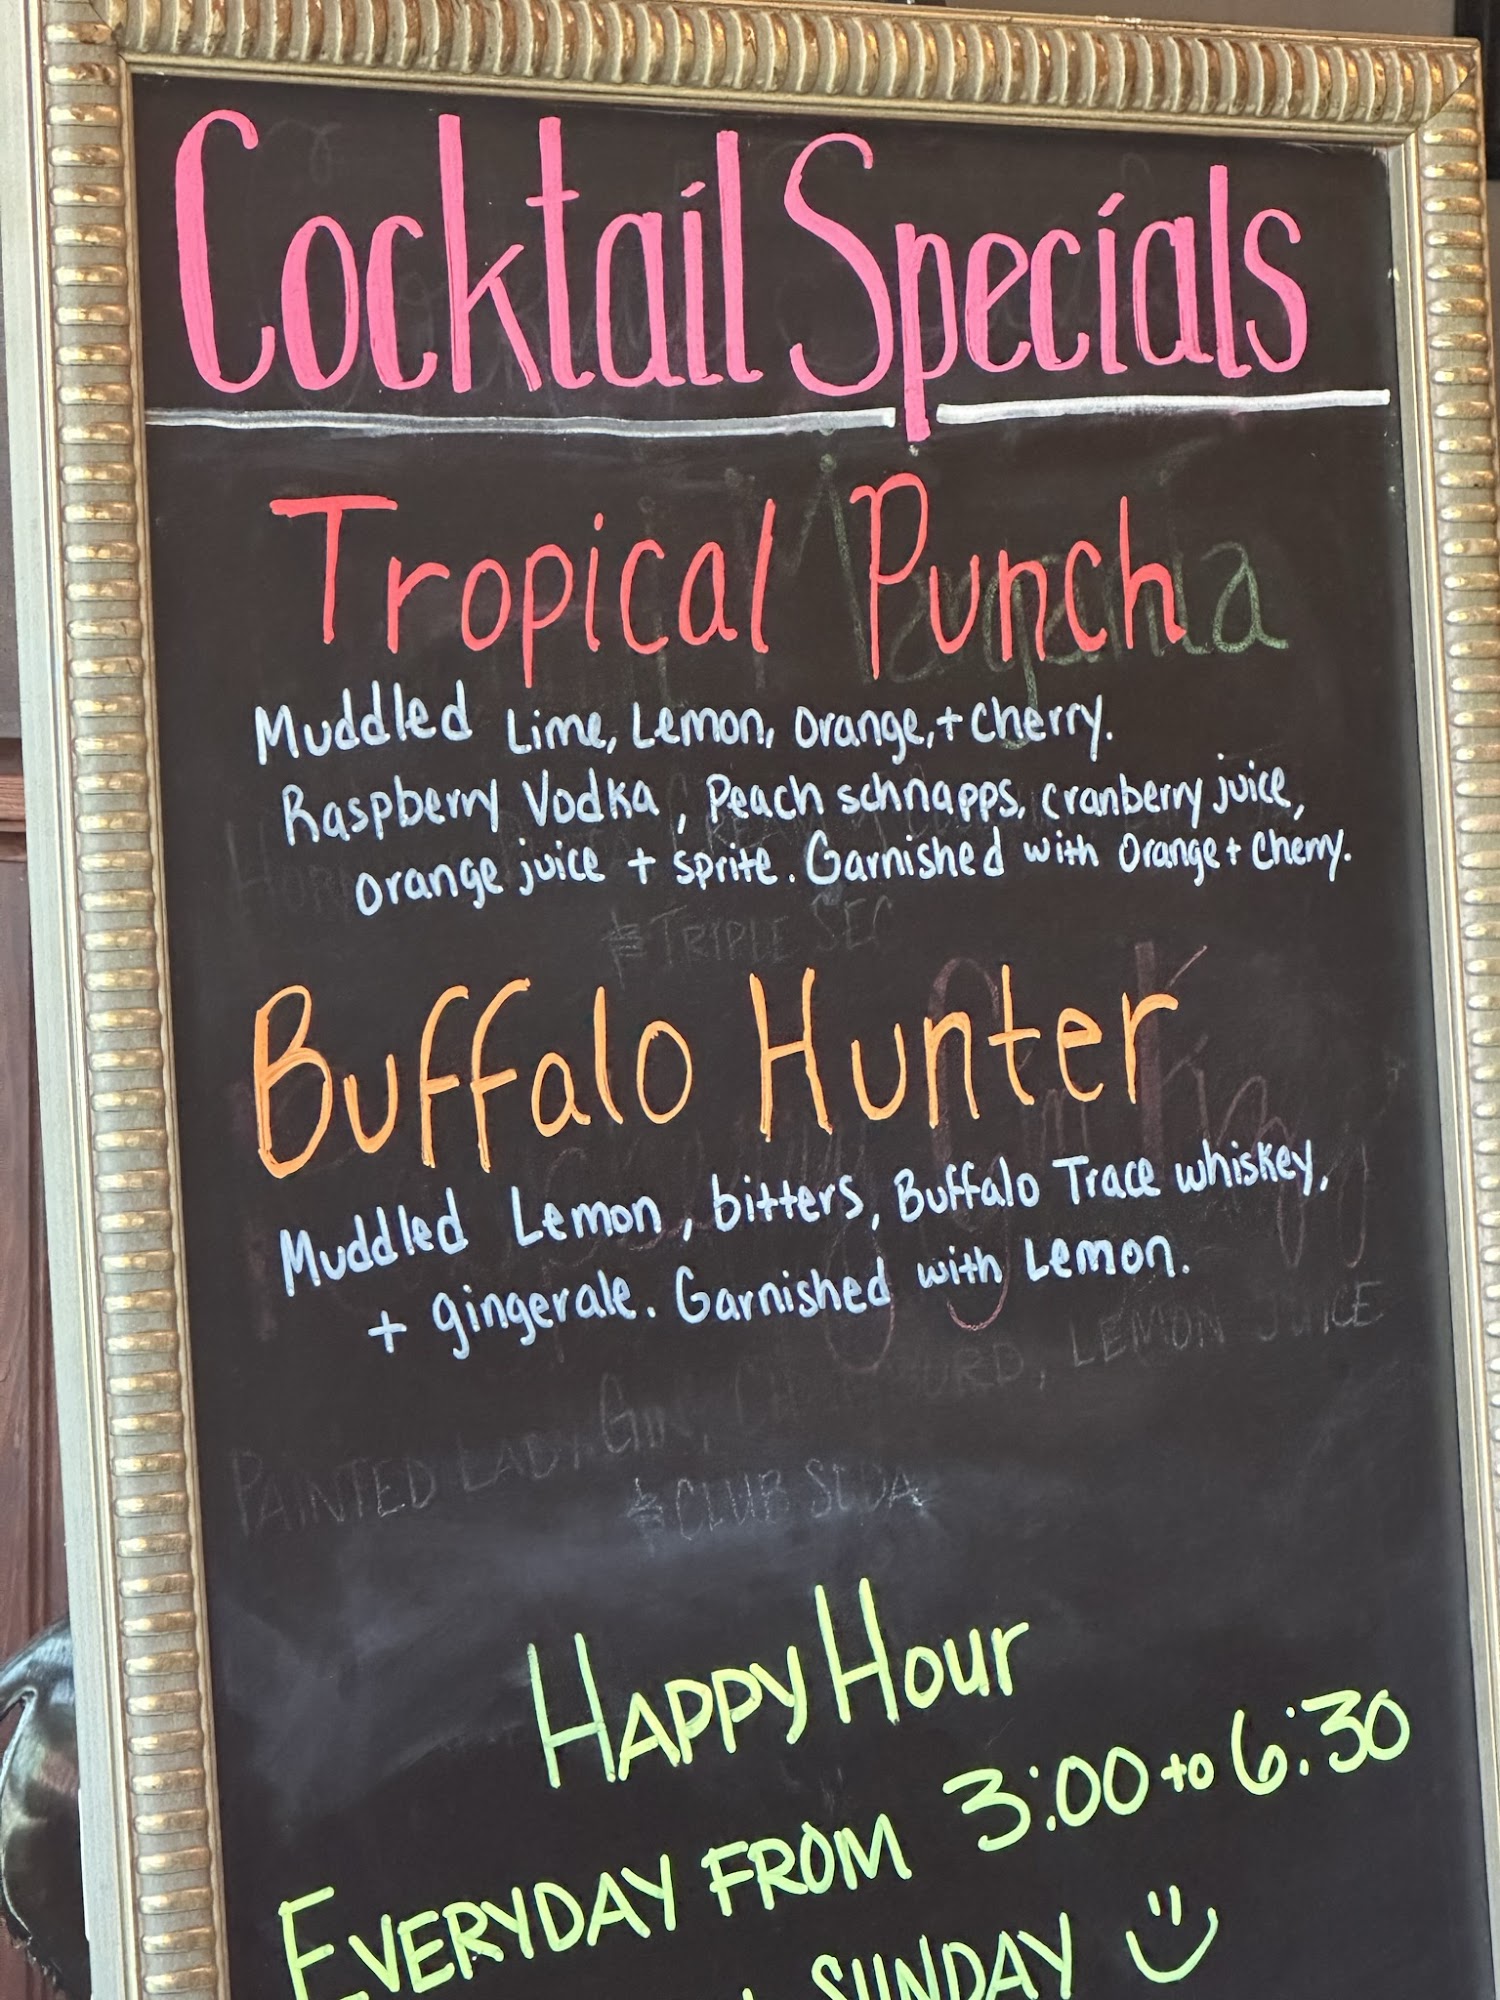 Cocktail Specials
Tropical Punch
Muddled Lime, Lemon, Orange, + Cherry.
Raspberry Vodka, Peach schnapps, cranberry juice,
orange juice + sprite. Garnished with Orange + Cherry.
& TRIPLE SEC
Buffalo Hunter
Muddled Lemon, bitters, Buffalo Trace whiskey,
+ gingerale. Garnished with Lemon.
LEMON JUICE
PAINTED LADY GIN,
& CLUB SODA
Happy Hour
EVERYDAY FROM 3:00 to 6:30
SUNDAY